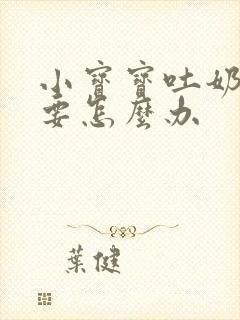 小寶寶吐奶
要怎麼办
葉健